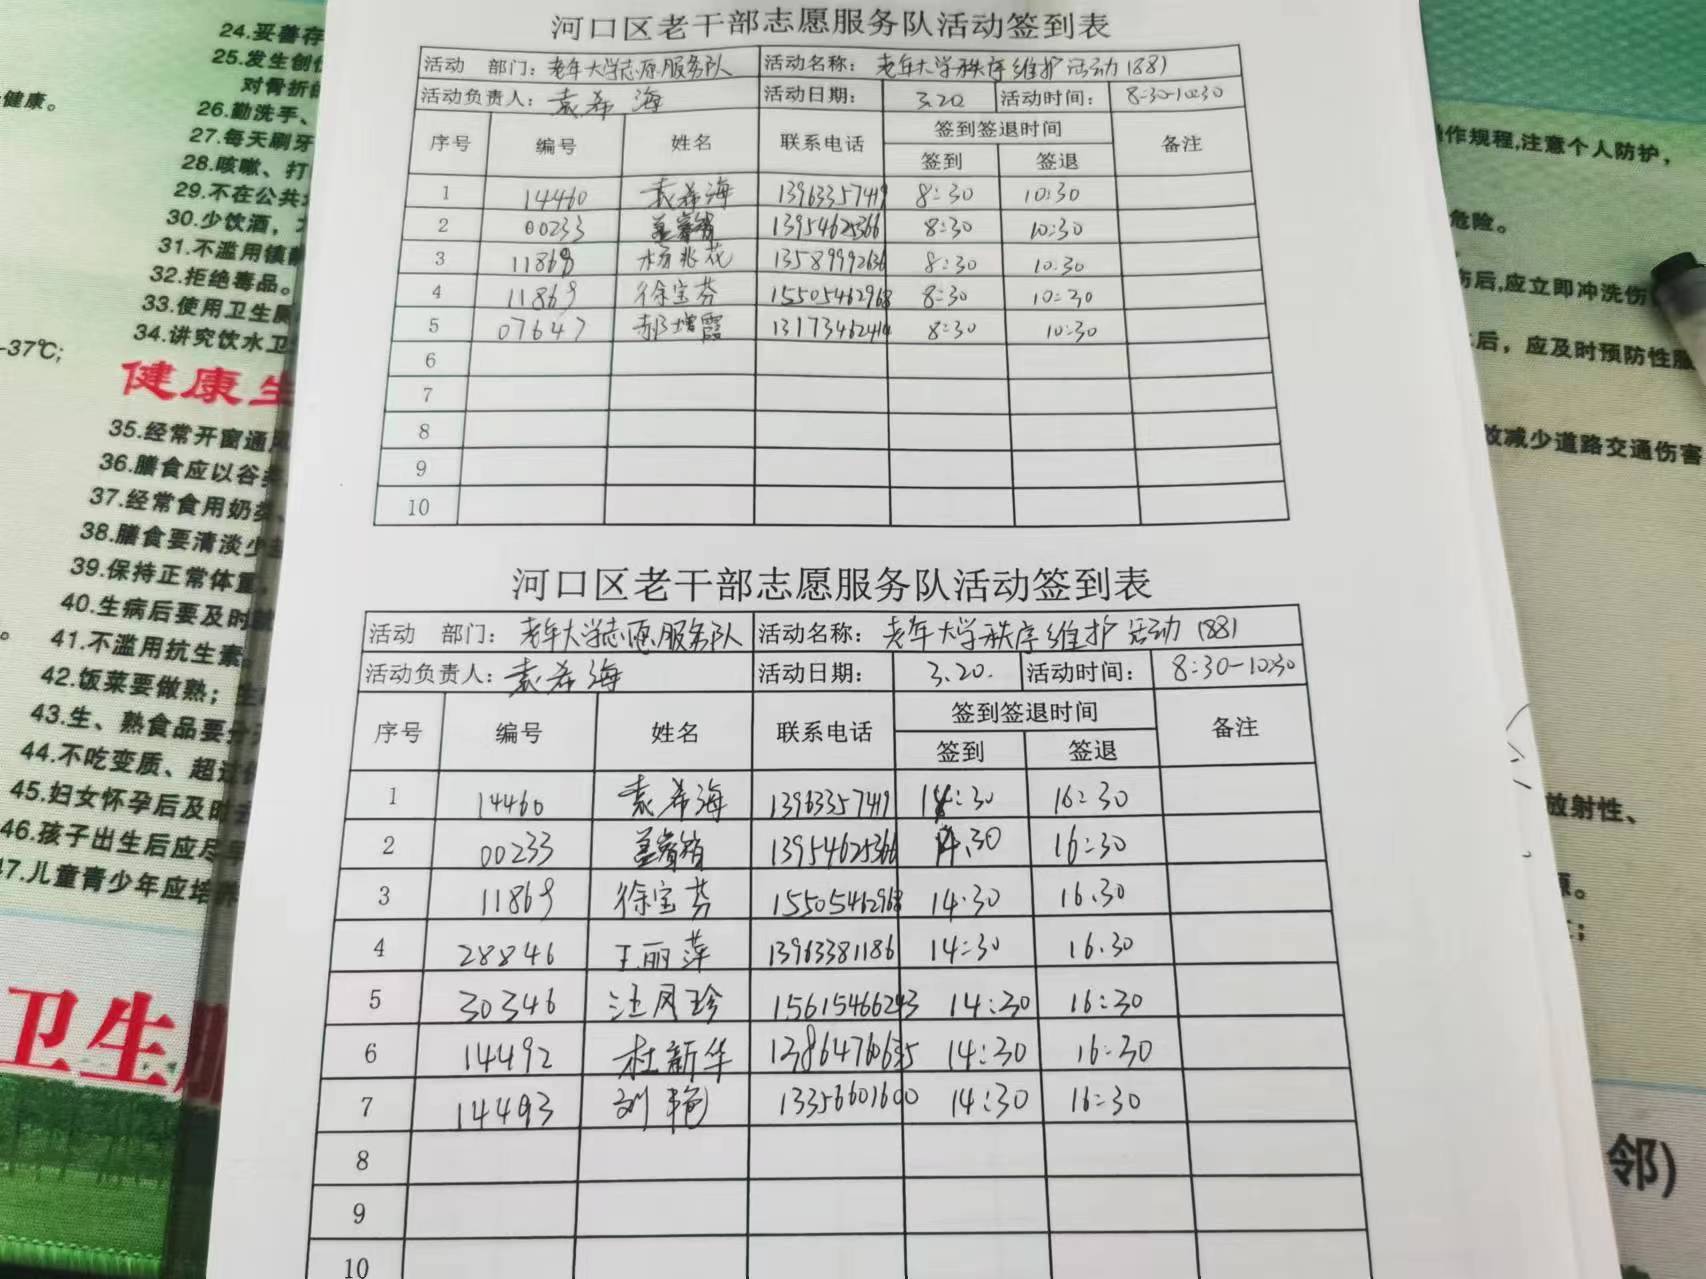 河口区老干部志愿服务队活动签到表
活动 部门：老年大学志愿服务队 活动名称：老年大学秩序维护活动1881
活动负责人：袁希海 活动日期：3.20 活动时间：8:30-10:30
序号 编号 姓名 联系电话 签到签退时间 备注
签到 签退
1 14460 袁希海 13963357419 8:30 10:30
2 00233 13954625366 8:30 10:30
3 11868 杨兆花 13589992636 8:30 10:30
4 11869 徐宝芬 15505462968 8:30 10:30
5 07647 郝增霞 13173462414 8:30 10:30
6
7
8
9
10
河口区老干部志愿服务队活动签到表
活动 部门：老年大学志愿服务队 活动名称：老年大学秩序维护活动1881
活动负责人：袁希海 活动日期：3.20. 活动时间：8:30-10:30
序号 编号 姓名 联系电话 签到签退时间 备注
签到 签退
1 14460 袁希海 13963357419 14:30 16:30
2 00233 13954625366 14.30 16:30
3 11869 徐宝芬 15505462968 14.30 16.30
4 28846 王丽萍 13963381186 14:30 16.30
5 30346 汪风珍 15615466243 14:30 16:30
6 14492 杜新华 13864760635 14:30 16:30
7 14493 刘艳 13356601600 14:30 16:30
8
9
10
24.妥善存
25.发生创伤
对骨折的
健康。
26.勤洗手、
27.每天刷牙
28.咳嗽、打
29.不在公共
30.少饮酒，
31.不滥用镇静
32.拒绝毒品。
33.使用卫生厕
34.讲究饮水卫
-37℃;
健康生
35.经常开窗通风
36.膳食应以谷类
37.经常食用奶类、
38.膳食要清淡少
39.保持正常体重
40.生病后要及时就
41.不滥用抗生素。
42.饭菜要做熟；生
43.生、熟食品要分
44.不吃变质、超过
45.妇女怀孕后及时
46.孩子出生后应尽早
47.儿童青少年应培养
卫生
操作规程,注意个人防护，
危险。
伤后,应立即冲洗伤
后，应及时预防性服
效减少道路交通伤害
放射性、
邻)